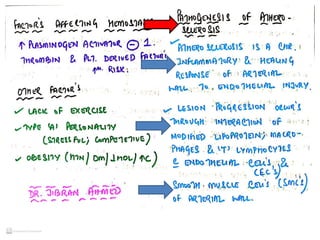 FACTOR'S AFFECTING HEMOSTASIS
↑ PLASMINOGEN ACTIVATOR ⊖ 1.
THROMBIN & PLT. DERIVED FACTORS
↑↑ RISK.
OTHER FACTOR'S
✓ LACK OF EXERCISE
✓ TYPE 'A' PERSONALITY
(STRESSFUL, COMPETETIVE)
✓ OBESITY (HTN / DM /
DR. JIBRAN AHMED
PATHOGENESIS OF ATHERO-
SCLEROSIS
✓ ATHEROSCLEROSIS IS A CHR.
INFLAMMATORY & HEALING
RESPONSE OF ARTERIAL
WALL TO ENDOTHELIAL INJURY.
✓ LESION PROGRESSION OCCUR'S
THROUGH INTERACTION OF
MODIFIED LIPOPROTEIN, MACRO-
PHAGES & "T" LYMPHOCYTES
C ENDOTHELIAL CELL'S &
(EC'S)
SMOOTH MUSCLE CELL'S (SMC'S)
OF ARTERIAL WALL.